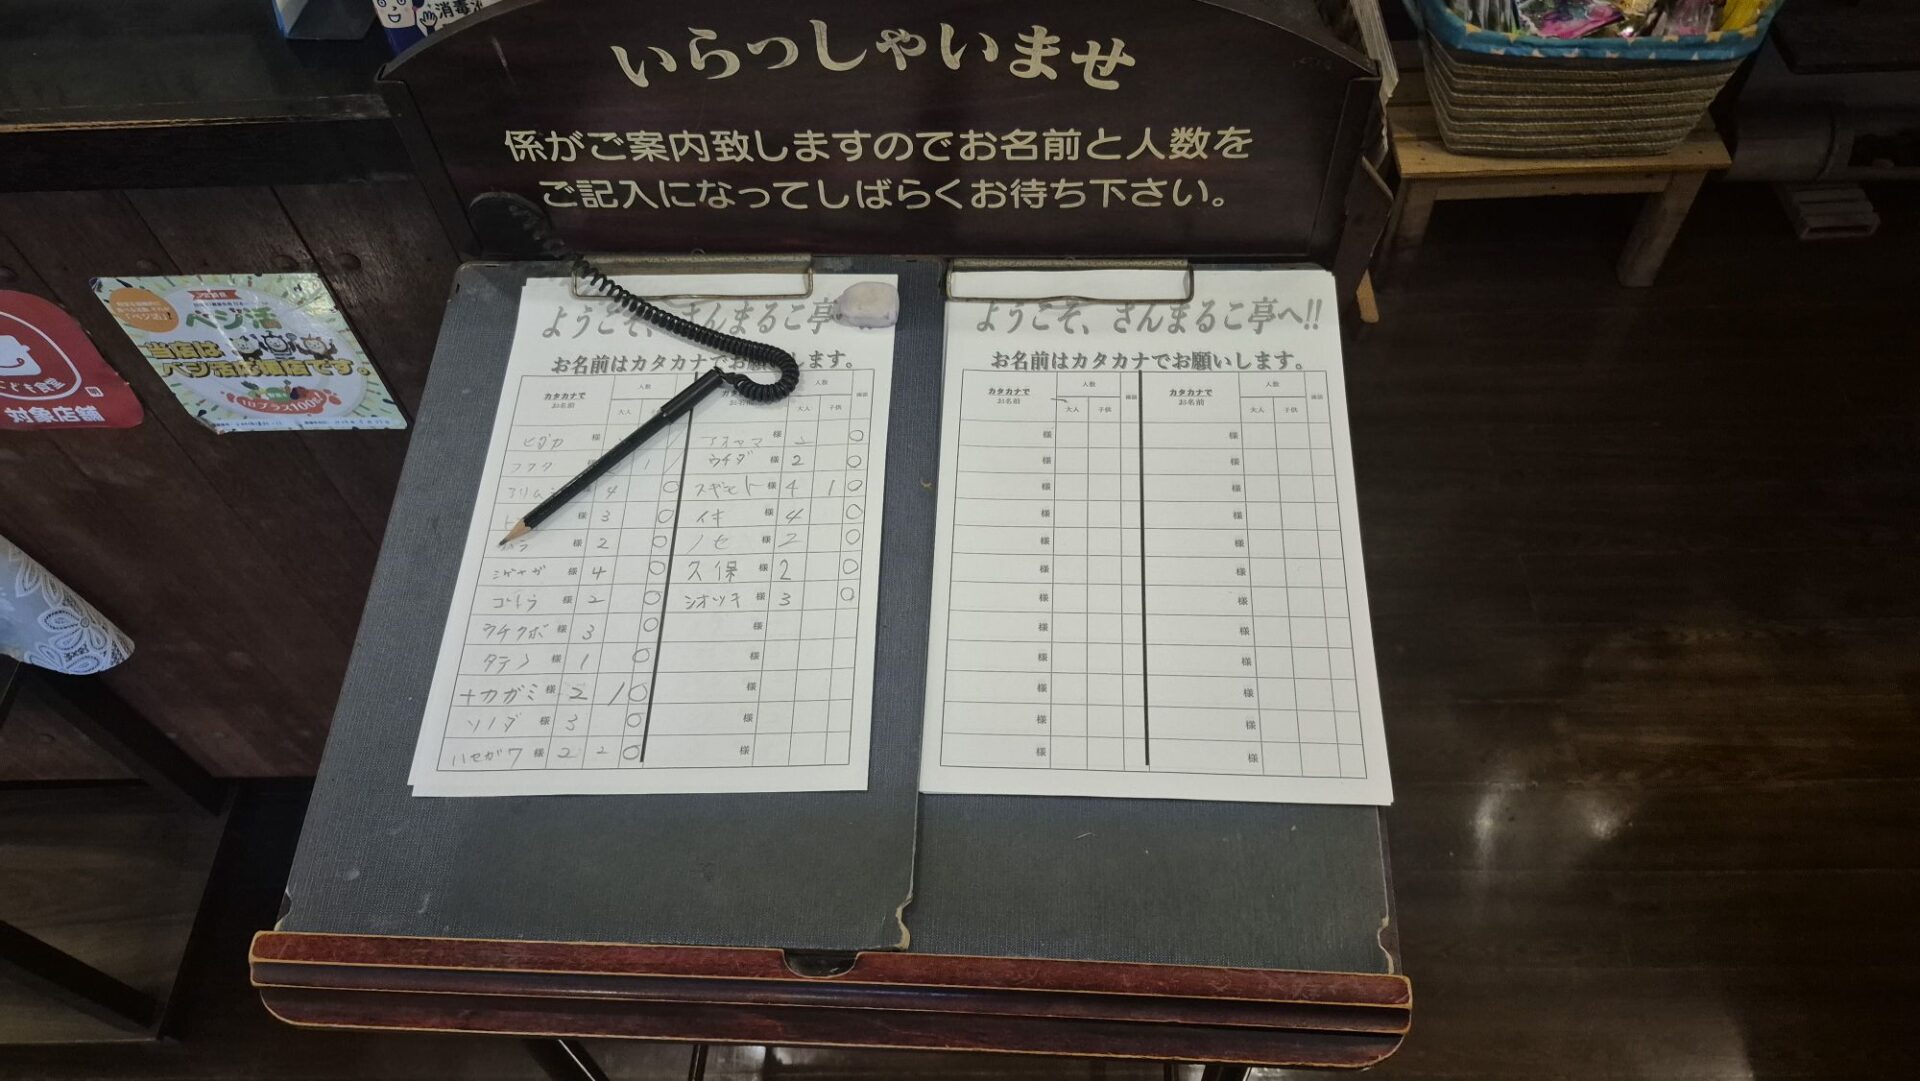 消毒液
いらっしゃいませ
係がご案内致しますのでお名前と人数を
ご記入になってしばらくお待ち下さい。
ベジ活
当店は
ベジ活応援店です。
1日プラス100g
こども食堂
対象店舗
ようこそ、さんまるこ亭
お名前はカタカナでお願いします。
カタカナで
お名前
人数
大人
人数
大人 子供
ヒダカ 様
様 2 ○
様 1
ウチダ 様 2 ○
様 4 ○
スギモト 様 4 1 ○
様 3 ○
イキ 様 4 ○
様 2 ○
ノセ 様 2 ○
様 4 ○
久保 様 2 ○
ゴトウ 様 2 ○
シオツキ 様 3 ○
ウチクボ 様 3 ○
様
タテノ 様 1 ○
様
ナカガミ 様 2 1 ○
様
ソノダ 様 3 ○
様
ハセガワ 様 2 2 ○
様
ようこそ、さんまるこ亭へ!!
お名前はカタカナでお願いします。
カタカナで
お名前
人数
大人 子供
カタカナで
お名前
人数
大人 子供
様 様
様 様
様 様
様 様
様 様
様 様
様 様
様 様
様 様
様 様
様 様
様 様